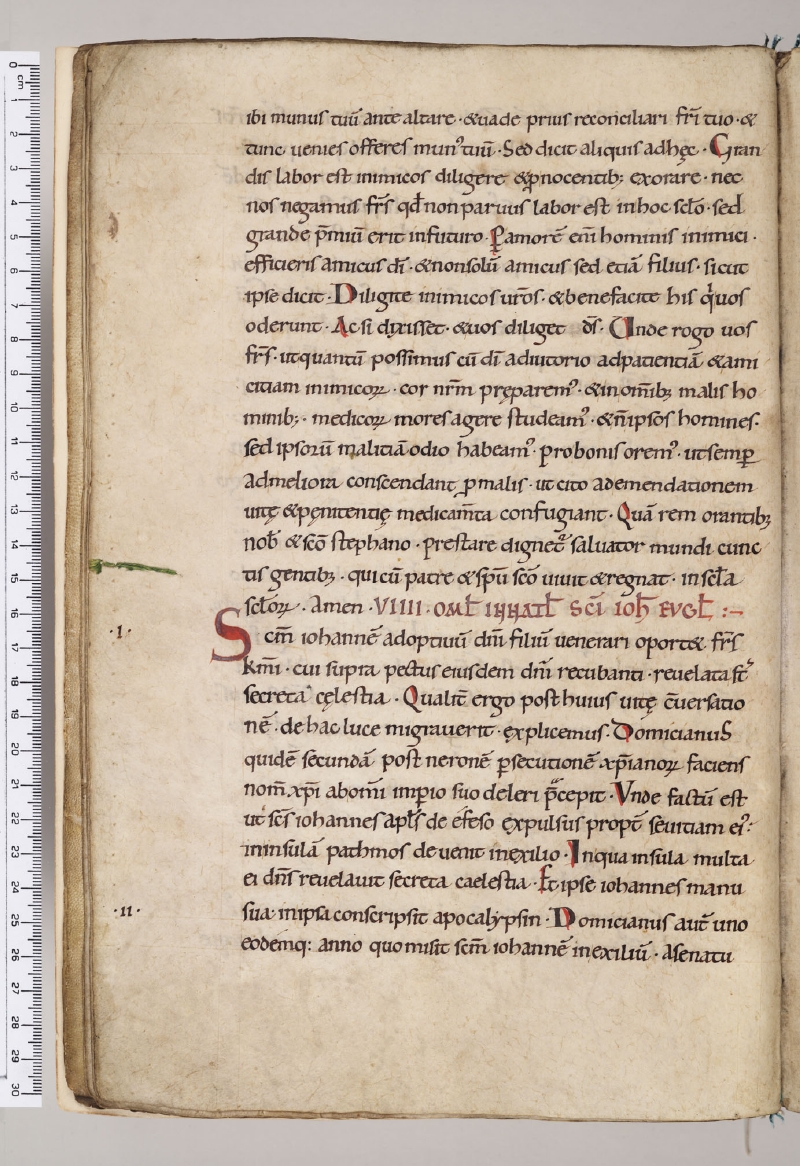 ibi munus tuū ante altare · &uade prius reconciliari fr̄i tuo · &
tunc uenies offeres mun᾿ tuū · Sed dicit aliquis adhęc · Gran
dis labor est inimicos diligere &ꝓnocentib; exorare · nec
nos negamus fr̄s qđ non paruus labor est inhoc sc̄lo · sed
grande p̄miū erit infuturo · Ꝑ amorē eni᷑ hominis inimici ·
efficieris amicus dī · &nonsolū amicus sed etiā filius · sicut
ipse dicit · Diligite inimicos ur̄os · &benefacite his q̇uos
oderunt · Ac si dixisset · &uos diliget d̄s · Unde rogo uos
fr̄s · utquantū possimus cū dī adiutorio adpatientiā &ami
citiam inimicoꝝ · cor nr̄m pręparem᾿ · &inom̄ib; malis ho
minib; · medicoꝝ mores agere studeam᾿ · &n̄ ipsos homines ·
sed ipsorū malitiā odio habeam᾿ · pro bonis orem᾿ · utsemꝑ
admeliora conscendant ꝓ malis · ut cito ad emendationem
uitę &pęnitentię medicam̄ta confugiant · Quā rem orantib;
nob̄ &sc̄o stephano · prestare dignet᷑ saluator mundi cunc
tis gentib; · qui cū patre &sp̄u sc̄o uiuit &regnat · in sc̄la
sc̄loꝝ · Amen · VIIII · OML̄ IN NATL̄ SCĪ IOH̄ EVGL̄ :~
·I· Sc̄m iohannē adoptiuū dn̄i filiū uenerari oport& fr̄s
km̄i · cui supra pectus eiusdem dn̄i recubanti · reuelata st̄
secreta cęlestia · Qualit̄ ergo post huius uitę c̄uersatio
nē · de hac luce migrauerit · explicemus · Domicianus
quidē secundā post neronē ꝑsecutionē xp̄ianoꝝ faciens
nom̄ xp̄i abomi᷑ imꝑio suo deleri p̄cepit · Vnde factū est
ut sc̄s iohannes apl̄s de efeso expulsus propt̄ seuitiam ei᾿ ·
ininsulā pathmos deuenit inexilio · Inqua insula multa
ei dn̄s reuelauit secreta caelestia · Et ipse iohannes manu
·II· sua inipsa conscripsit apocalypsin · Domicianus aut̄ uno
eodemq: anno quo misit sc̄m iohannē inexiliū · Asenatu